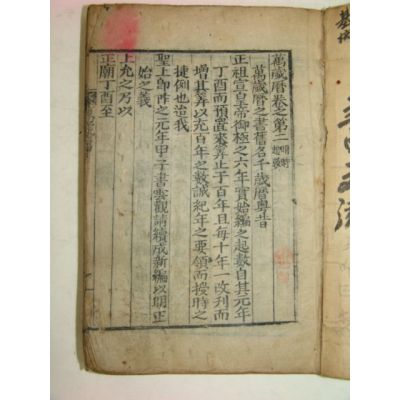 萬歲曆卷之第二
萬歲曆之書舊名千歲曆粵昔
正祖宣皇帝御極之六年實始編之起數自其元年
丁酉而預置來筭止于百年且每十年一改刊而
增其筭以充百年之數誠紀年之要領而授時之
捷例也洎我
聖上卽阼之元年甲子書雲觀請續成新編以明正
始之義
上允之乃以
正廟丁酉至